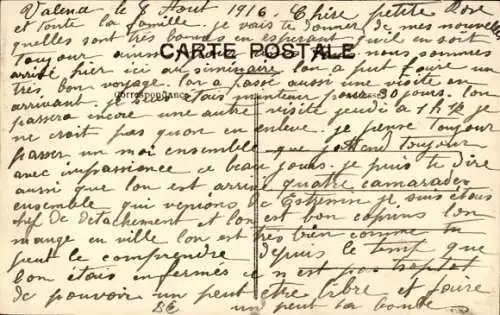 Valence le 8 Aout 1916. Chère petite Rose
et toute la famille. je vais te donner de mes nouvelles
quelles sont très bonnes en esperant qu'il en soit
toujour ainsi nous sommes
CARTE POSTALE
arrivé hier ici au seminaire lon a put faire un
très bon voyage. lon a passé aussi une visite en
arrivant. je étais maintenu pour 30 jours. lon
Correspondance
passera encore une autre visite jeudi a 1 h 1/2 je
ne croit pas quon en enleve. je pense toujour
passer un moi ensemble que jattend toujour
avec impassience ce beau jours. je puis te dire
aussi que lon est arrivé quatre camarades
ensemble qui venons de je suis étais
chef de detachement et lon est bon copins lon
mange en ville lon est très bien comme tu
peut le comprendre depuis le temp que
lon étais enfermés ce n'est pas
de pouvoir un peut etre libre et faire
un peut sa